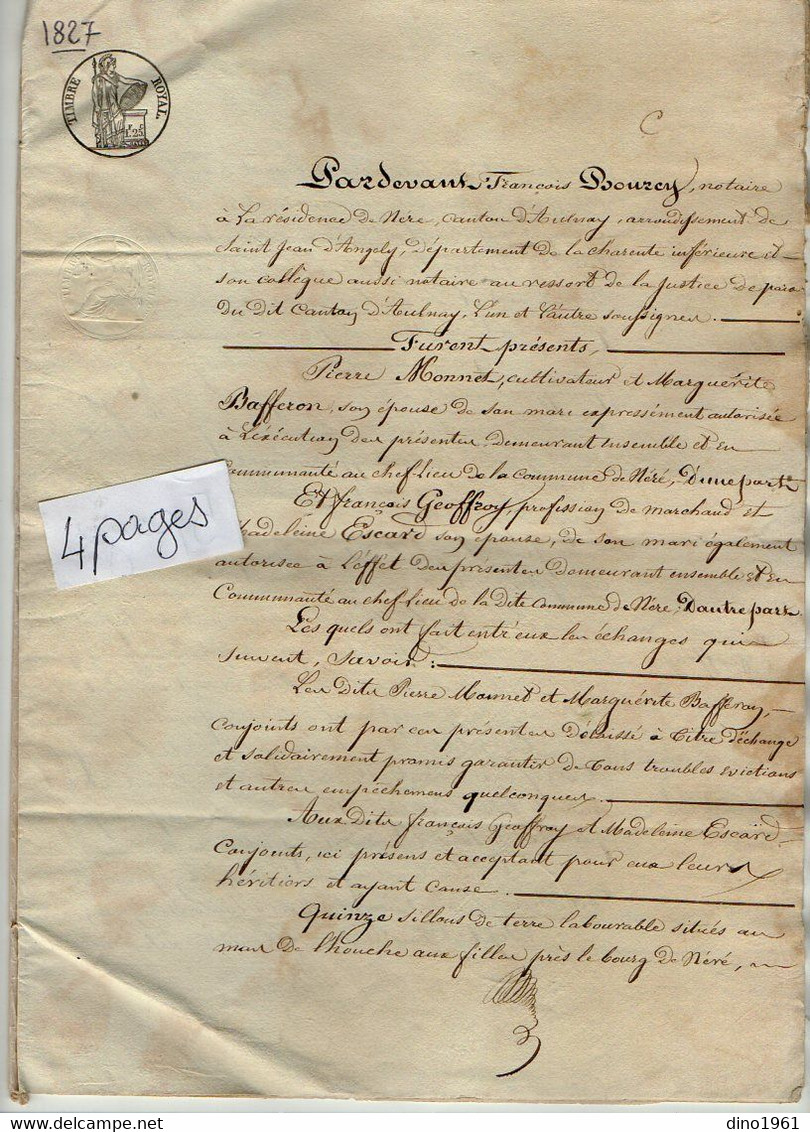 1827
TIMBRE ROYAL.
C
Pardevant François Bourcy, notaire
à La résidence De Néré, canton D'Aulnay, arrondissement de
Saint Jean d'Angely, Département de la charente inférieure et
son collègue aussi notaire au ressort de la Justice de paix
Du Dit Canton D'Aulnay, L'un et L'autre soussignés.
Furent présents,
Pierre Monnet, cultivateur et Marguérite
Bafferon, son épouse de son mari expressément autorisée
à L'éxécution des présentes Demeurant Ensemble et en
Communauté au chef-lieu De la Commune de Néré, D'une part
Et françois Geoffroy, profession De marchand et
Madeleine Escard son épouse, de son mari également
autorisée à L'éffet des présentes Demeurant ensemble Et en
Communauté au chef-lieu de la Dite commune de Néré, D'autre part
4 pages
Les quels ont fait entr'eux les échanges qui
suivent, Savoir :
Les Dits Pierre Monnet et Marguérite Bafferon,
conjoints ont par ces présentes Délaissé à titre d'échange
et solidairement promis garantir de tous troubles evictions
et autres empêchemens quelconques.
Aux Dits françois Geoffroy et Madeleine Escard
Conjoints, ici présens et acceptant pour eux leurs
héritiers et ayant Cause.
Quinze sillons de terre labourable situés au
mas De l'houche aux filles près le bourg de Néré, un
dino1961